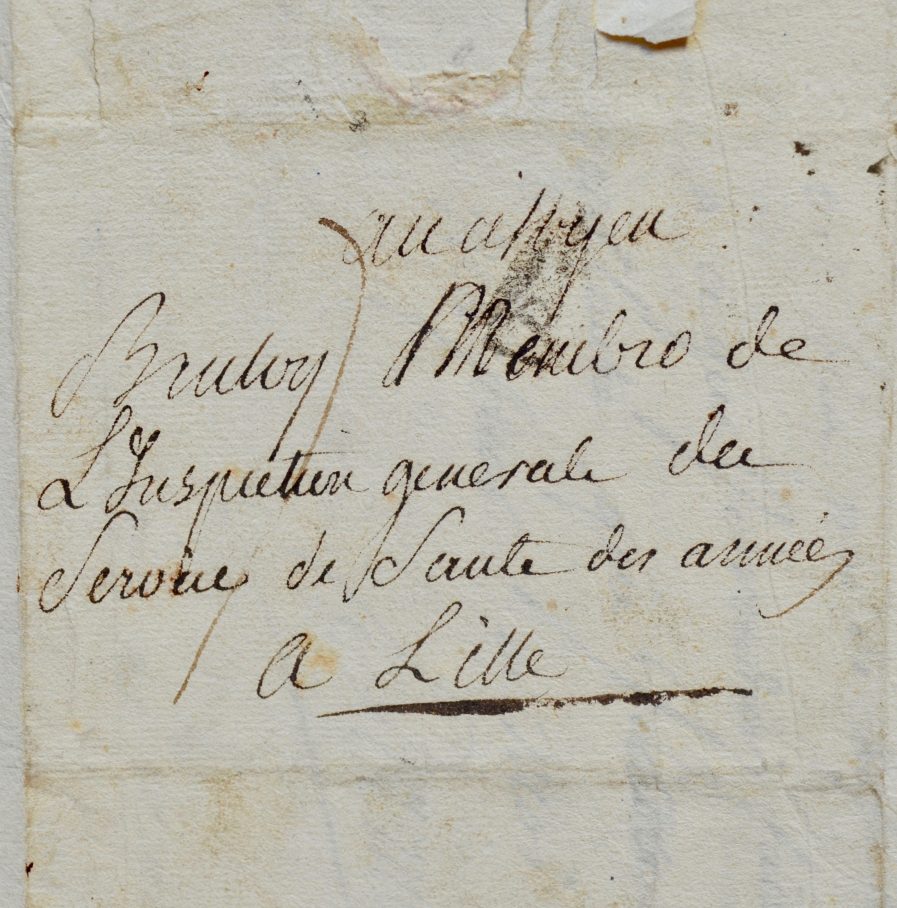 au citoyen
Bruloy Membre de
L'Inspection generale du
Service de Sante des armées
a Lille